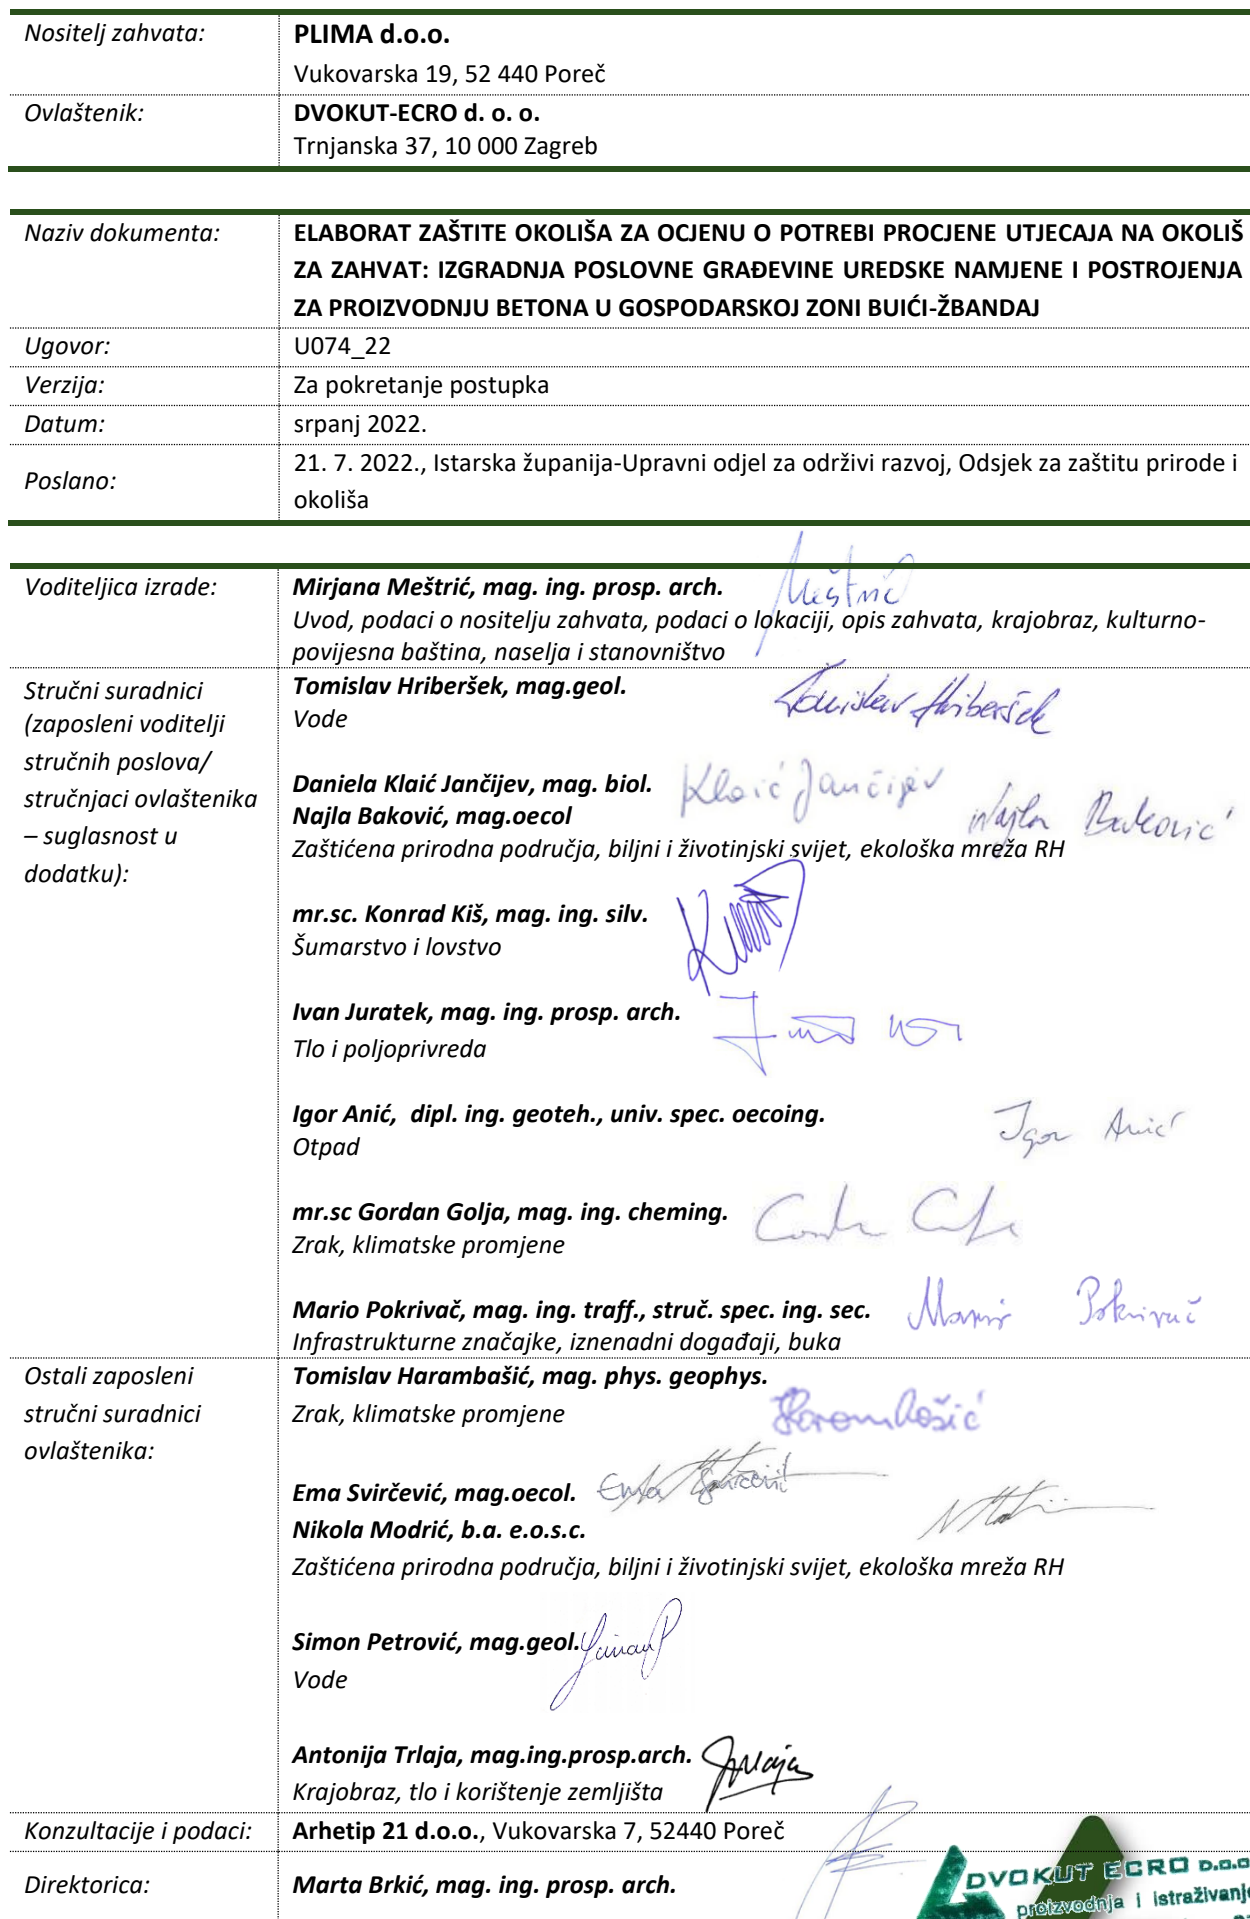 Nositelj zahvata:
PLIMA d.o.o.
Vukovarska 19, 52 440 Poreč
Ovlaštenik:
DVOKUT-ECRO d. o. o.
Trnjanska 37, 10 000 Zagreb
Naziv dokumenta:
ELABORAT ZAŠTITE OKOLIŠA ZA OCJENU O POTREBI PROCJENE UTJECAJA NA OKOLIŠ
ZA ZAHVAT: IZGRADNJA POSLOVNE GRAĐEVINE UREDSKE NAMJENE I POSTROJENJA
ZA PROIZVODNJU BETONA U GOSPODARSKOJ ZONI BUIĆI-ŽBANDAJ
Ugovor:
U074_22
Verzija:
Za pokretanje postupka
Datum:
srpanj 2022.
Poslano:
21. 7. 2022., Istarska županija-Upravni odjel za održivi razvoj, Odsjek za zaštitu prirode i
okoliša
Voditeljica izrade:
Mirjana Meštrić, mag. ing. prosp. arch.
Meštrić
Uvod, podaci o nositelju zahvata, podaci o lokaciji, opis zahvata, krajobraz, kulturno-
povijesna baština, naselja i stanovništvo
Stručni suradnici
(zaposleni voditelji
stručnih poslova/
stručnjaci ovlaštenika
– suglasnost u
dodatku):
Tomislav Hriberšek, mag.geol.
Tomislav Hriberšek
Vode
Daniela Klaić Jančijev, mag. biol.
Klaić Jančijev
Najla Baković, mag.oecol
Najla Baković
Zaštićena prirodna područja, biljni i životinjski svijet, ekološka mreža RH
mr.sc. Konrad Kiš, mag. ing. silv.
Šumarstvo i lovstvo
Ivan Juratek, mag. ing. prosp. arch.
Tlo i poljoprivreda
Igor Anić, dipl. ing. geoteh., univ. spec. oecoing.
Igor Anić
Otpad
mr.sc Gordan Golja, mag. ing. cheming.
Zrak, klimatske promjene
Mario Pokrivač, mag. ing. traff., struč. spec. ing. sec.
Mario Pokrivač
Infrastrukturne značajke, iznenadni događaji, buka
Ostali zaposleni
stručni suradnici
ovlaštenika:
Tomislav Harambašić, mag. phys. geophys.
Harambašić
Zrak, klimatske promjene
Ema Svirčević, mag.oecol.
Ema Svirčević
Nikola Modrić, b.a. e.o.s.c.
Zaštićena prirodna područja, biljni i životinjski svijet, ekološka mreža RH
Simon Petrović, mag.geol.
Vode
Antonija Trlaja, mag.ing.prosp.arch.
Trlaja
Krajobraz, tlo i korištenje zemljišta
Konzultacije i podaci:
Arhetip 21 d.o.o., Vukovarska 7, 52440 Poreč
Direktorica:
Marta Brkić, mag. ing. prosp. arch.
DVOKUT ECRO D.O.O
proizvodnja i istraživanje